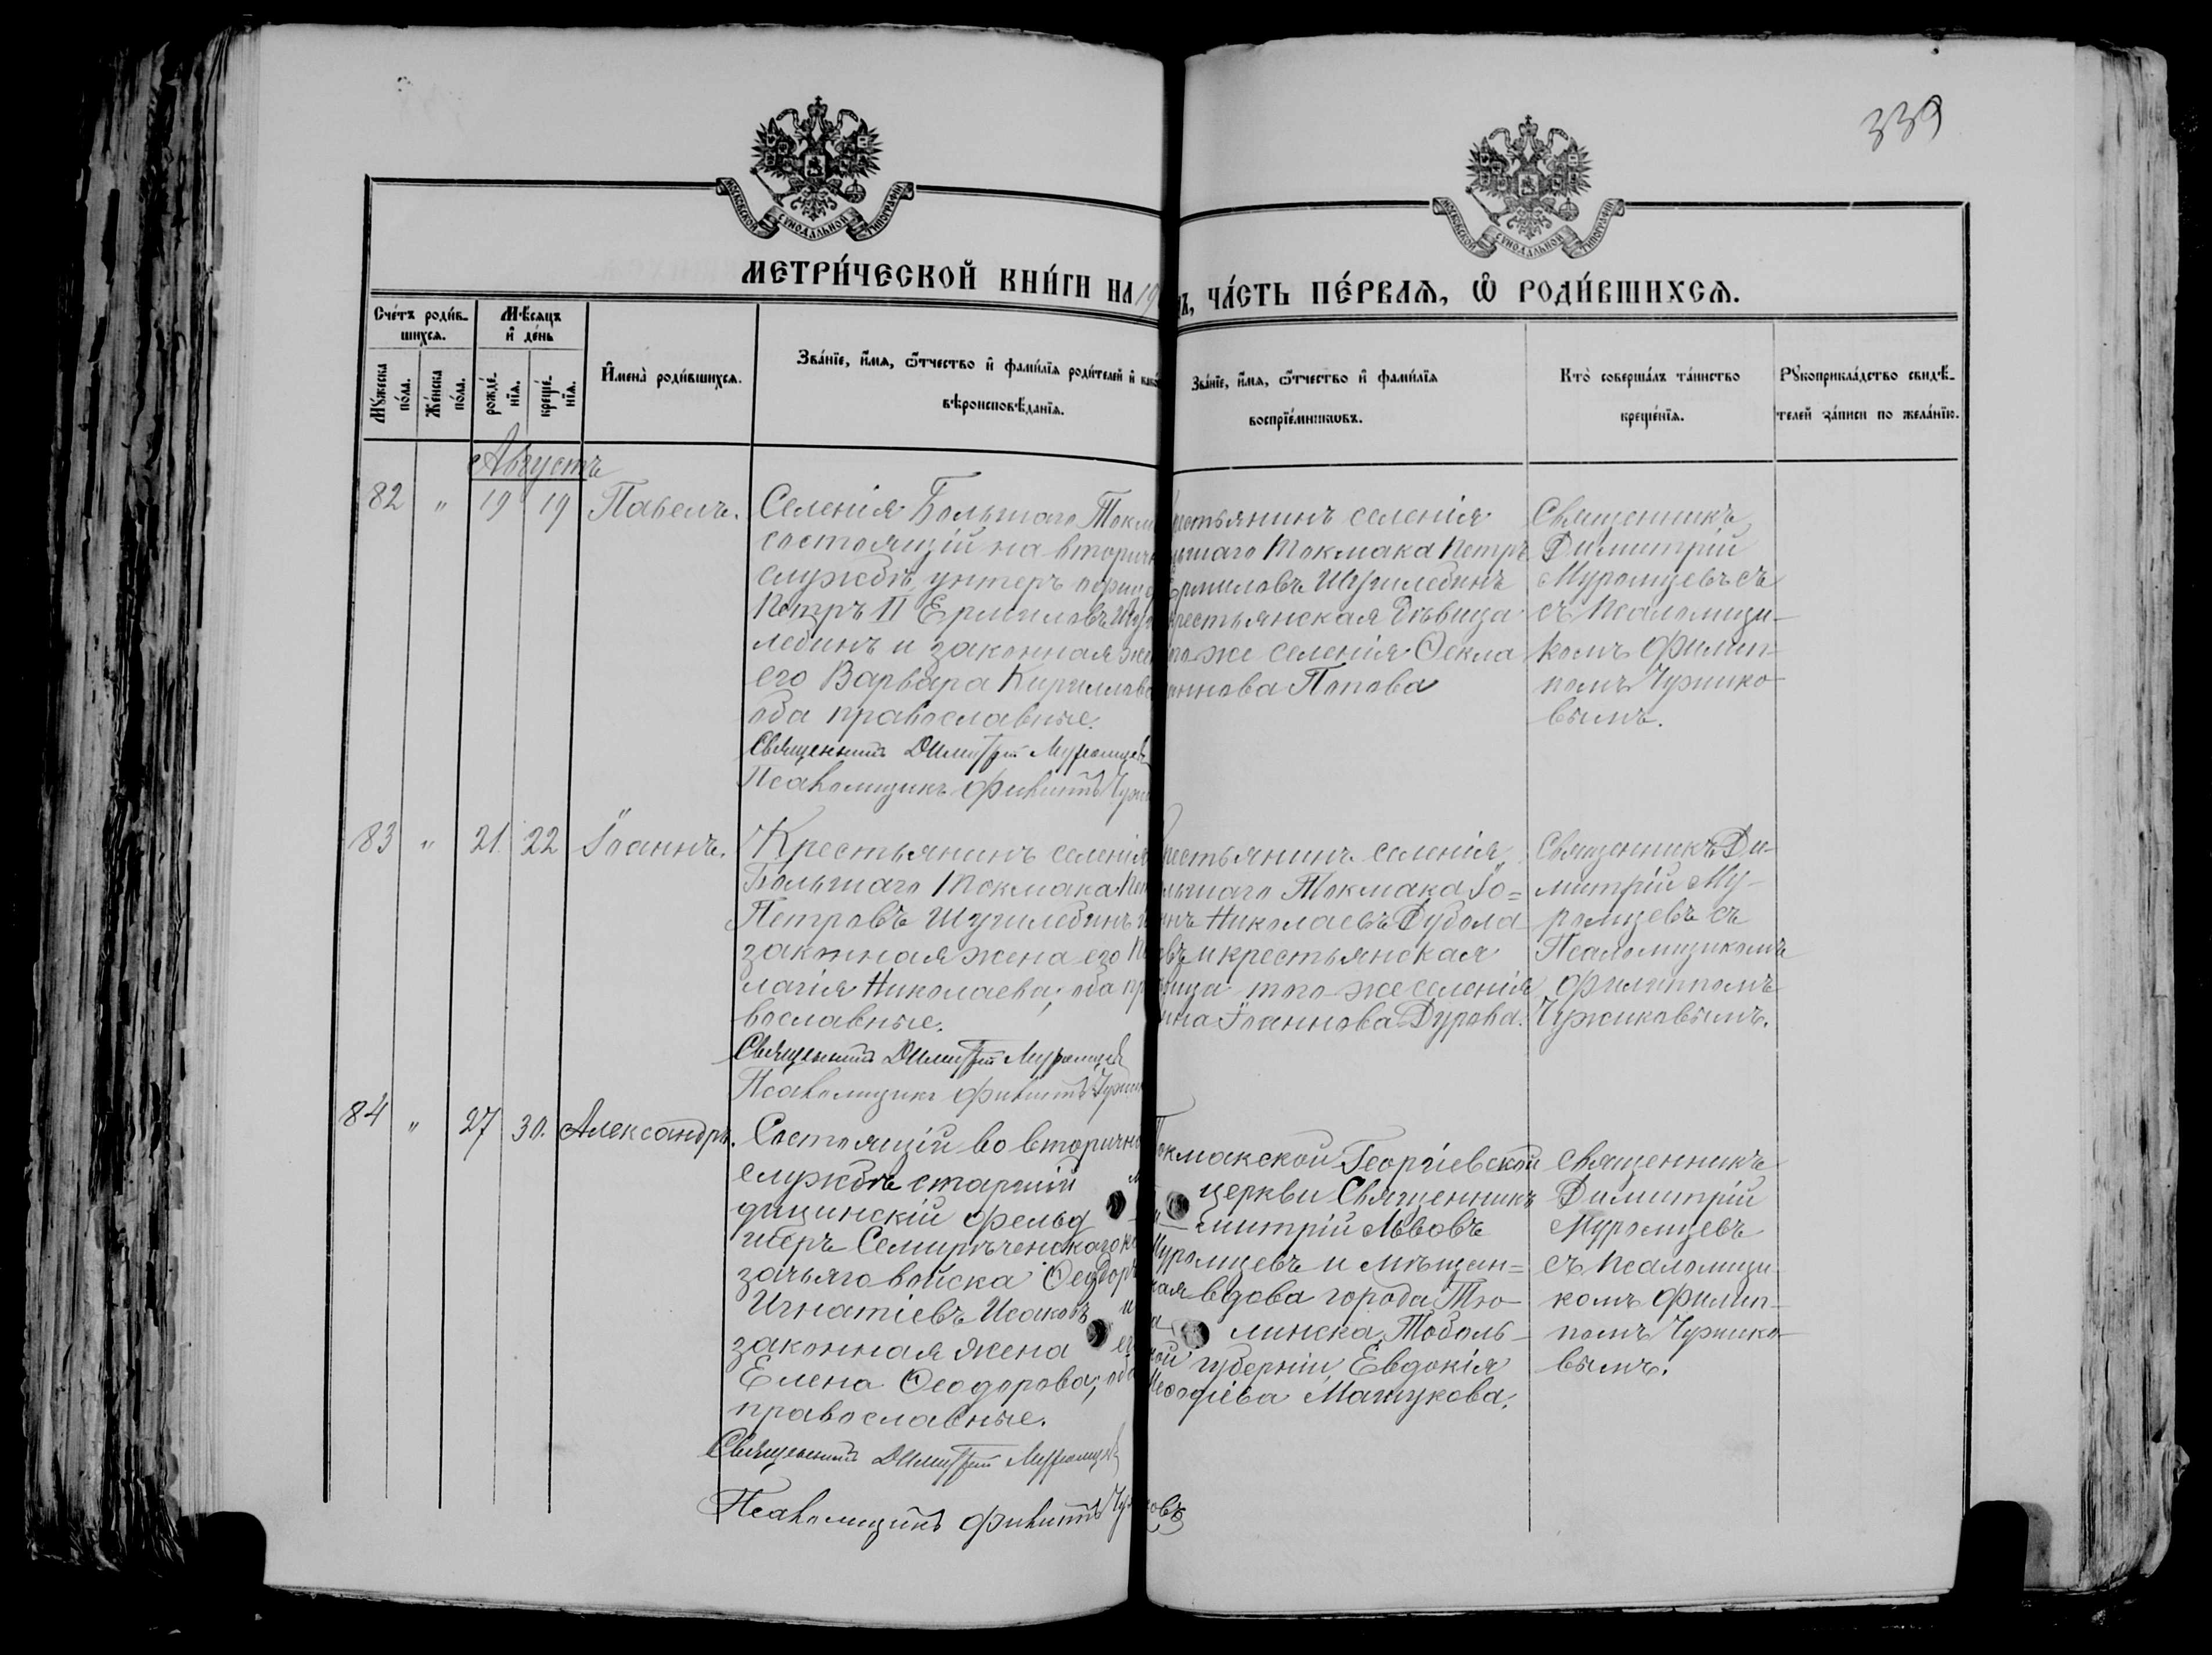 339
МОСКОВСКОЙ СѴНОДАЛЬНОЙ ТИПОГРАФІИ
МОСКОВСКОЙ СѴНОДАЛЬНОЙ ТИПОГРАФІИ
МЕТРИ́ЧЕСКОЙ КНИ́ГИ НА 19
ЧА́СТЬ ПЕ́РВАѦ, Ѽ РОДИ́ВШИХСѦ.
Сче́тъ роди́в-
шихсѧ.
Мѣ́сѧцъ
и҆ де́нь
Мꙋжеска по́ла.
Же́нска по́ла.
рожде́-нїѧ.
креще́-нїѧ.
И҆мена̀ роди́вшихсѧ.
Зва́нїе, и҆́мѧ, ѻ҆́тчество и҆ фами́лїѧ роди́телей и҆
вѣроисповѣ́данїѧ.
Зва́нїе, и҆́мѧ, ѻ҆́тчество и҆ фами́лїѧ
воспрїе́мникѡвъ.
Кто̀ соверша́лъ та́инство
креще́нїѧ.
Рꙋкоприкла́дство свидѣ́-
телей за́писи по жела́нїю.
Августъ
82 " 19 19 Павелъ.
Селенія Большаго Токм
состоящій на вторич
службѣ унтеръ офице
Петръ II Ермиловъ Шу
лебинъ и законная же
его Варвара Кириллов
оба православные.
Священникъ Димитрій Муромцев
Псаломщикъ Филиппъ Чужи
рестьянинъ селенія
ьшаго Токмака Петръ
Ермиловъ Шушлебинъ
рестьянская дѣвица
го же селенія Ѳекла
аннова Попова
Священникъ
Димитрій
Муромцевъ съ
съ Псаломщи-
комъ Филип-
помъ Чужико-
вымъ.
83 " 21 22 Іоаннъ.
Крестьянинъ селенія
Большаго Токмака
Петровъ Шушлебинъ и
законная жена его Пе
лагія Николаева; оба пр
вославные.
Священникъ Димитрій Муромцев
Псаломщикъ Филиппъ Чужи
рестьянинъ селенія
льшаго Токмака Іо=
ннъ Николаевъ Дубола
овъ и крестьянская
вица того-же селенія
нна Іоаннова Дурова.
Священникъ Ди-
митрій Му-
ромцевъ съ
Псаломщикомъ
Филиппомъ
Чужиковымъ.
84 " 27 30. Александръ.
Состоящій во вторично
службѣ старшій
дицинскій фельд
шеръ Семирѣченскаго ка
зачьяго войска Ѳеодоръ
Игнатіевъ Исаковъ и
законная жена ег
Елена Ѳеодорова; оба
православные.
Священникъ Димитрій Муромцев
Псаломщикъ Филиппъ Чу овъ
Токмакской Георгіевской
церкви Священникъ
митрій Львовъ
Муромцевъ и мѣщан=
кая вдова города Тю-
линска Тоболь-
кой губерніи, Евдокія
Меѳодіева Машукова.
Священникъ
Димитрій
Муромцевъ
съ Псаломщи-
комъ Филип-
помъ Чужико-
вымъ.